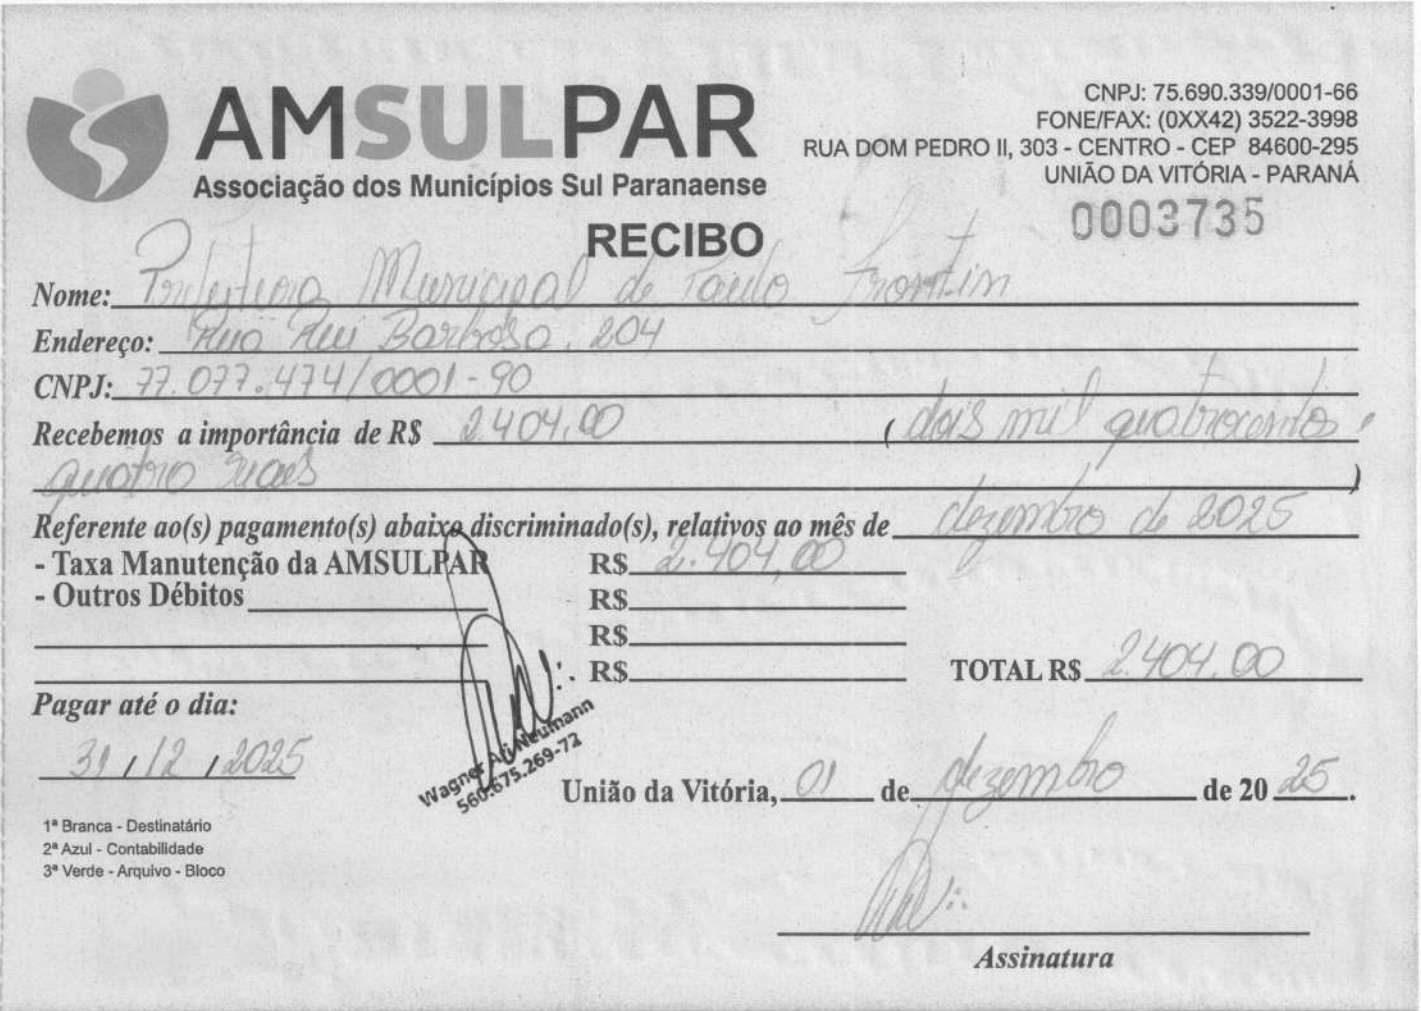 AMSULPAR
Associação dos Municípios Sul Paranaense
CNPJ: 75.690.339/0001-66
FONE/FAX: (0XX42) 3522-3998
RUA DOM PEDRO II, 303 - CENTRO - CEP 84600-295
UNIÃO DA VITÓRIA - PARANÁ
0003735
RECIBO
Nome: Prefeitura Municipal de Paulo Frontin
Endereço: Rua Rui Barbosa, 204
CNPJ: 77.077.474/0001-90
Recebemos a importância de R$ 2.404,00 ( dois mil quatrocentos e
quatro reais )
Referente ao(s) pagamento(s) abaixo discriminado(s), relativos ao mês de dezembro de 2025
- Taxa Manutenção da AMSULPAR R$ 2.404,00
- Outros Débitos R$
R$
R$ TOTAL R$ 2.404,00
Pagar até o dia:
31 / 12 / 2025
Wagner Ari Neumann
560.675.269-72
União da Vitória, 01 de dezembro de 20 25.
1ª Branca - Destinatário
2ª Azul - Contabilidade
3ª Verde - Arquivo - Bloco
Assinatura